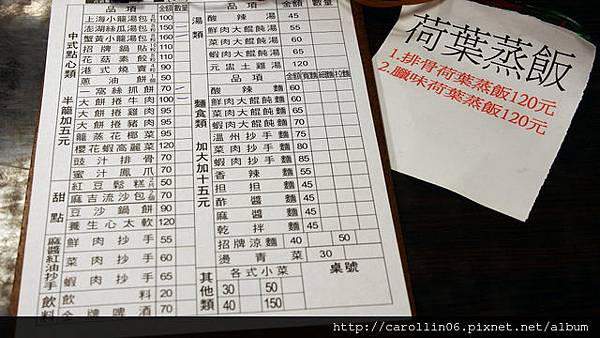 品項 金額 數量
中式點心類 半籠加五元
上海小籠湯包 100
澎湖絲瓜湯包 150
蟹黃小籠湯包 150
招牌鍋貼 110
花菇素餃 110
港式燒賣 90
蔥油餅 50
一窩絲抓餅 70
大餅捲牛肉 100
大餅捲雞肉 95
大餅捲豬肉 95
籠蒸花椰菜 95
櫻花蝦高麗菜 90
豉汁排骨 70
蜜汁鳳爪 70
甜點
紅豆鬆糕 50
麻吉流沙包 70
豆沙鍋餅 90
養生心太軟 120
麻醬紅油抄手
鮮肉抄手 55
菜肉抄手 60
蝦肉抄手 65
飲料
飲料 20
金牌啤酒
品項 金額 數量
湯類
酸辣湯 45
鮮肉大餛飩湯 55
菜肉大餛飩湯 60
蝦肉大餛飩湯 65
元盅土雞湯 130
品項 金額 寬麵 細麵 拉麵
麵食類 加大加十五元
酸辣麵 60
鮮肉大餛飩麵 60
菜肉大餛飩麵 65
蝦肉大餛飩麵 70
溫州抄手麵 75
紅油抄手麵 80
招牌抄手麵 85
香辣麵 55
担担麵 45
酢醬麵 45
麻醬麵 45
乾拌麵 45
招牌涼麵 40 50
邊青菜 30
其他類
各式小菜 桌號
30 50
40 150
荷葉蒸飯
1.排骨荷葉蒸飯120元
2.臘味荷葉蒸飯120元
http://carollin06.pixnet.net/album